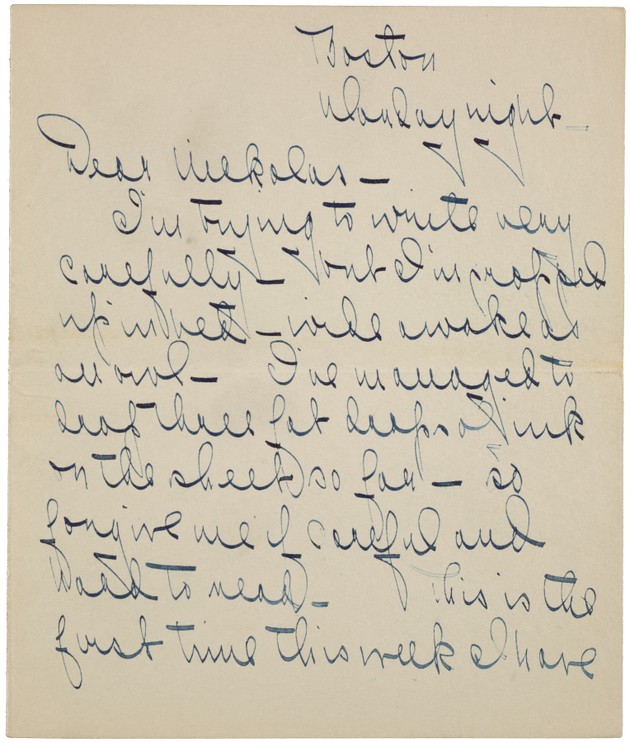 Boston
Monday night —
Dear Nickolas —
I'm trying to write very
carefully — but I'm propped
up in bed — wide awake as
an owl — I've managed to
drop three fat drops of ink
on the sheet so far — so
forgive me if careful and
hard to read — This is the
first time this week I have